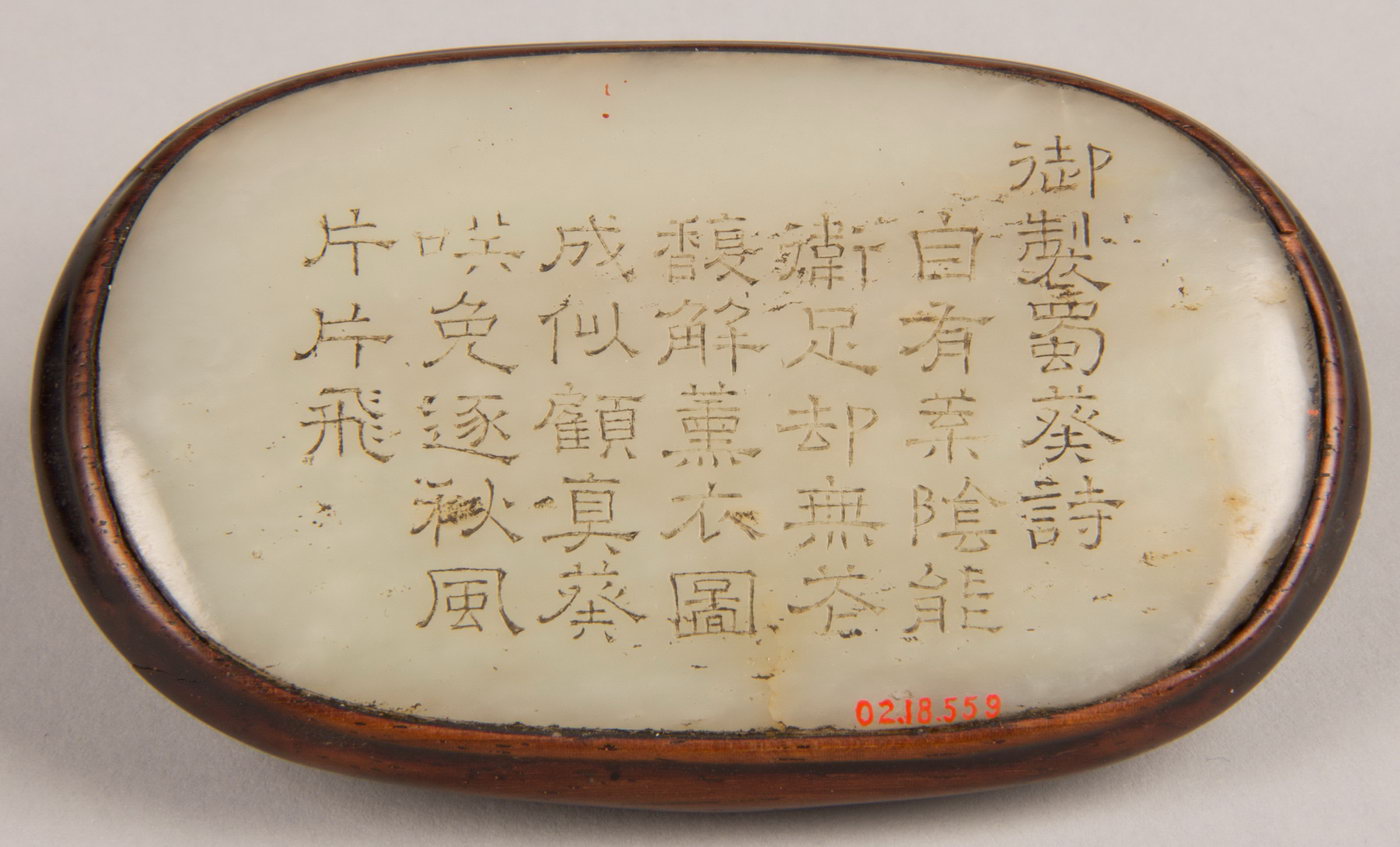 御製蜀葵詩
自有葉陰能
衛足却無
馥解薰衣圖
成似顧真葵
哄免逐秋風
片片飛
02.18.559